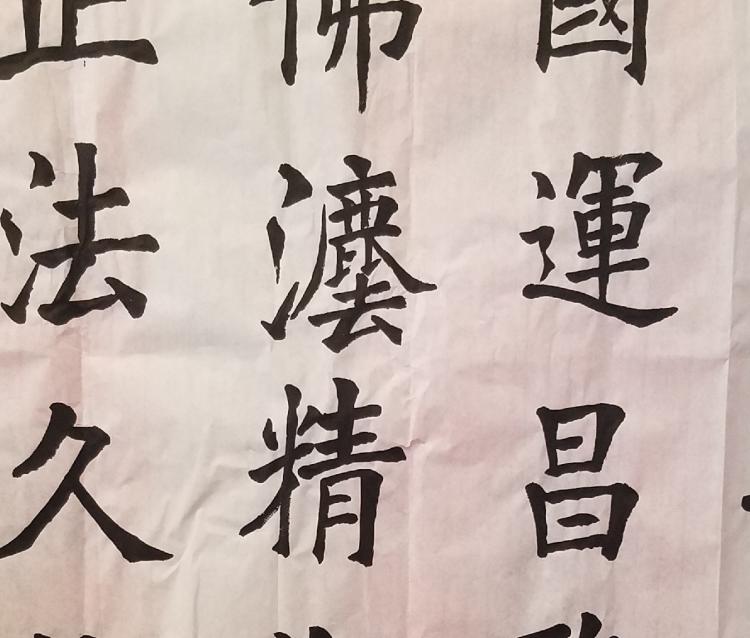 國運昌
佛灋精
正法久